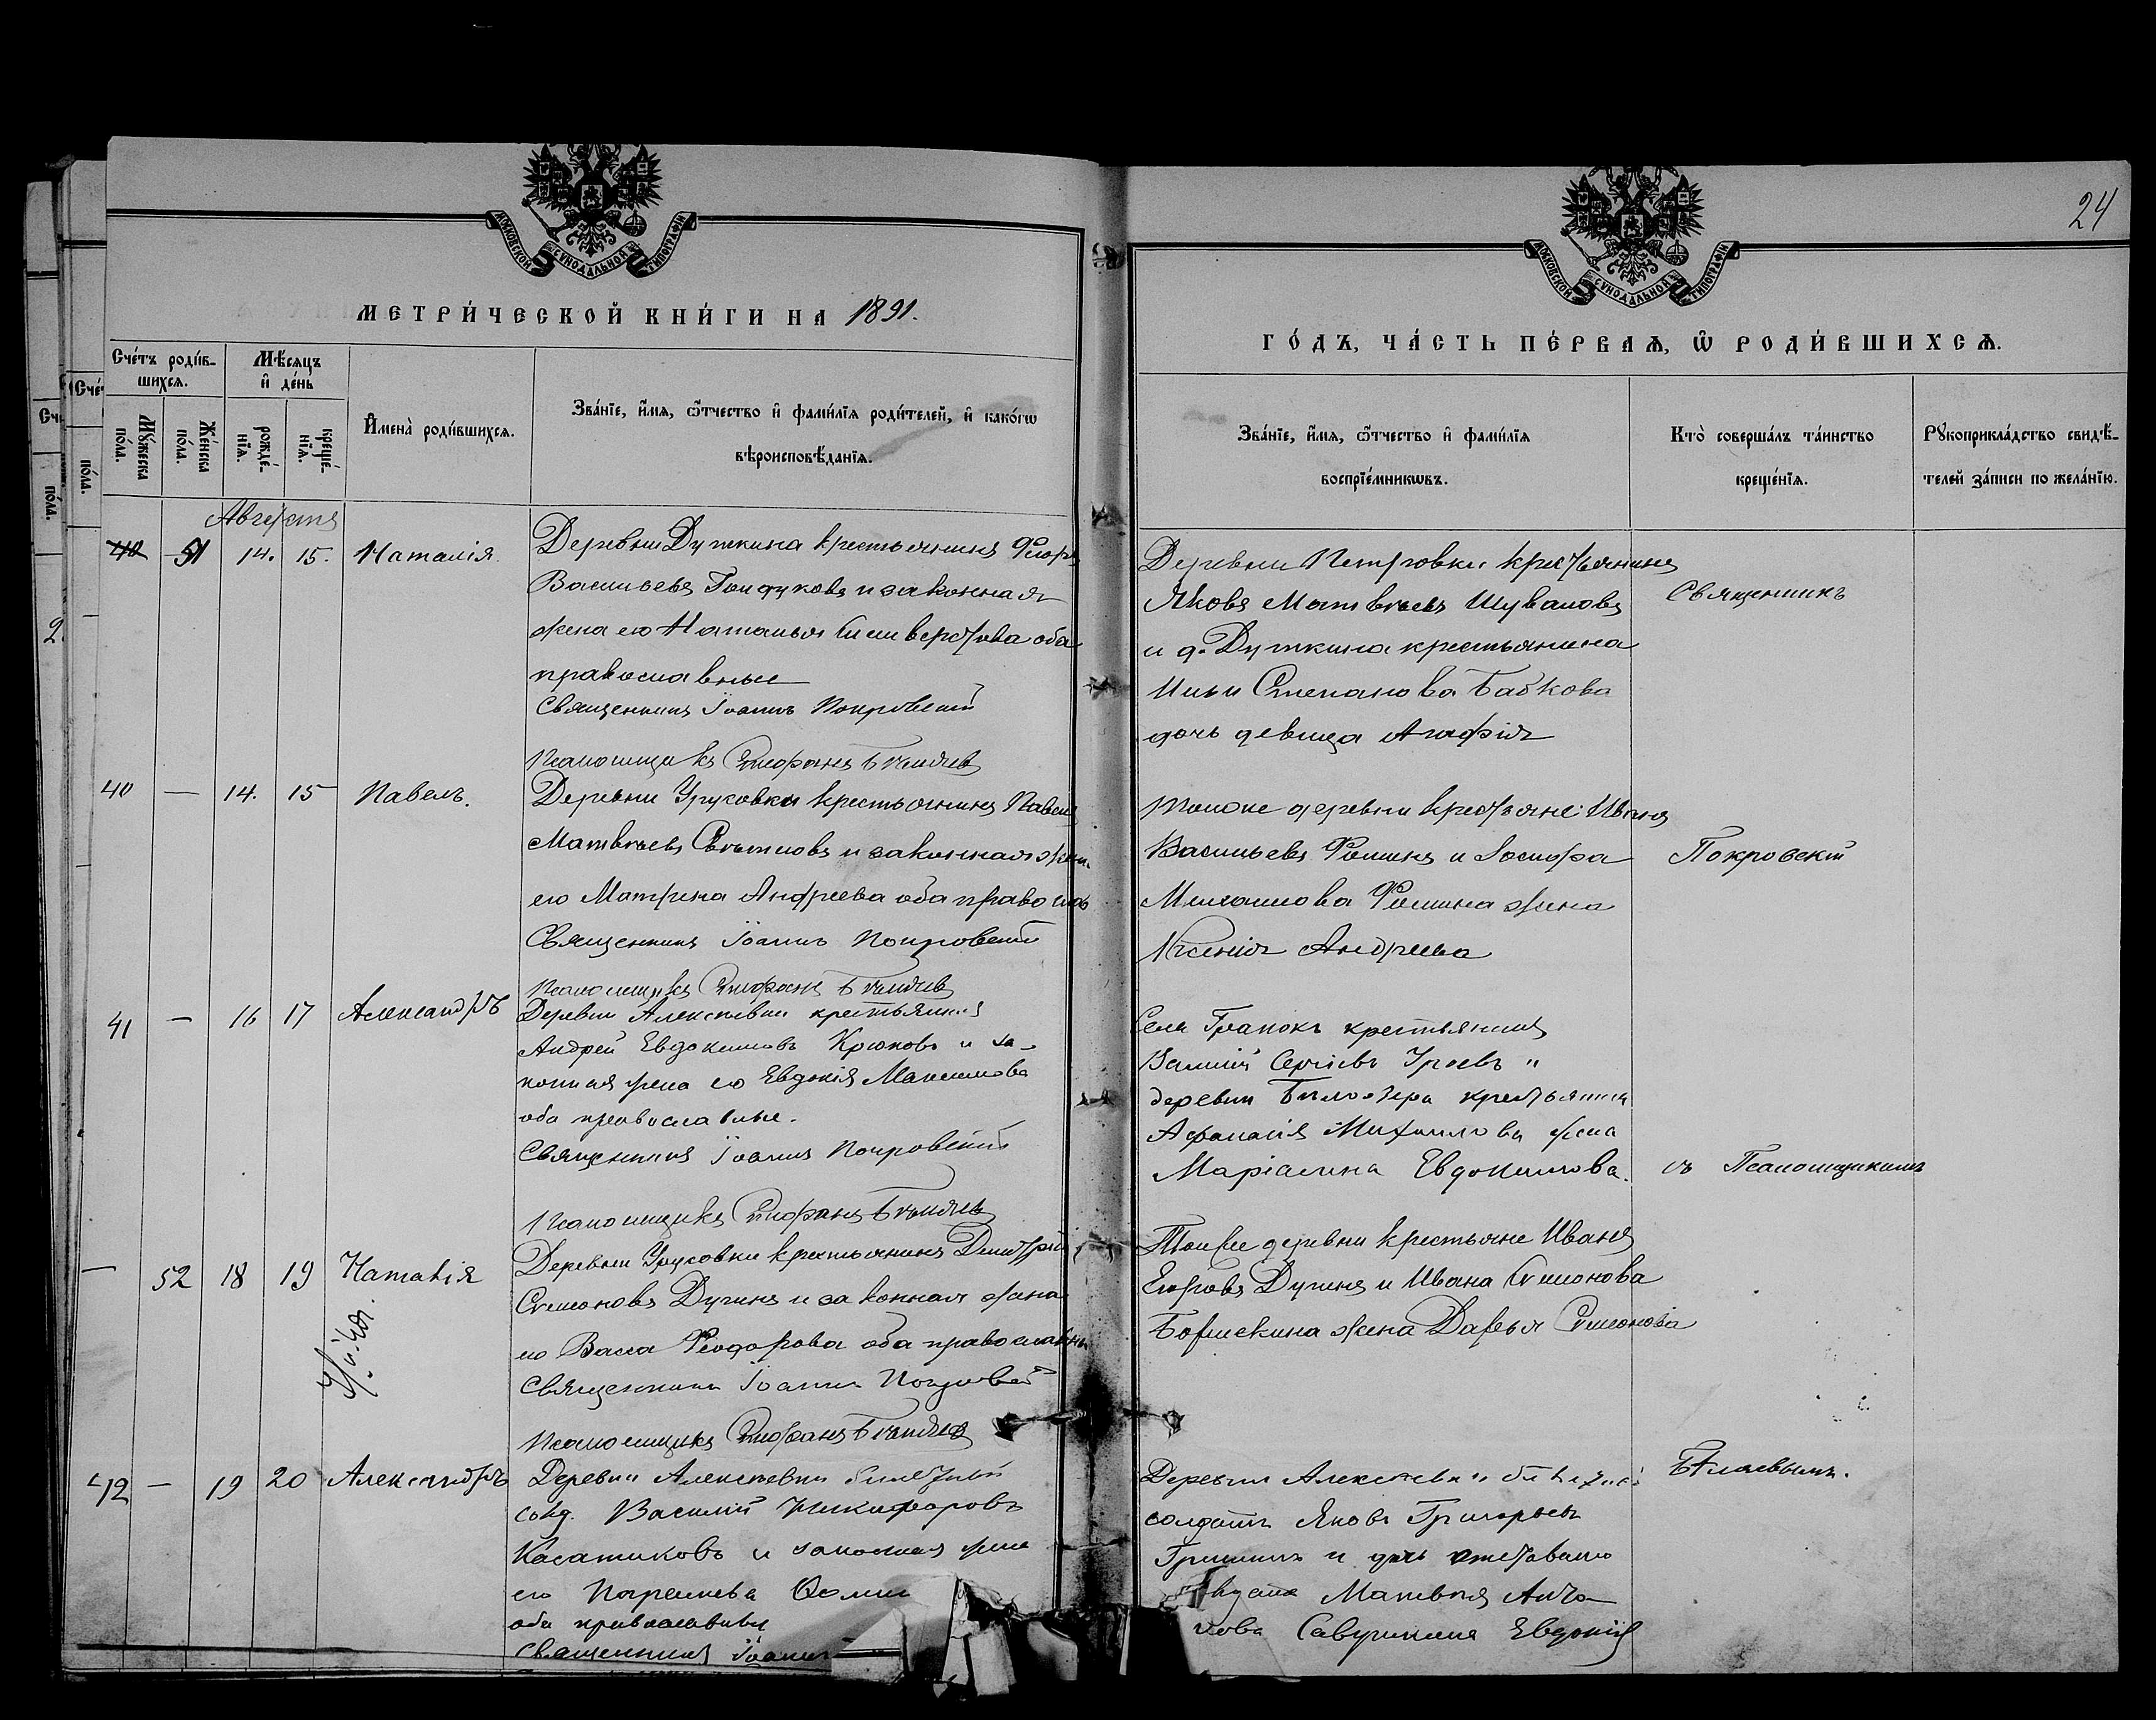 24
МОСКОВСКОЙ СѴНОДАЛЬНОЙ ТИПОГРАФІИ
МЕТРИ́ЧЕСКОЙ КНИ́ГИ НА 1891.
Сче́тъ роди́в-
шихсѧ.
Мꙋ́жеска
по́ла.
Же́нска
по́ла.
Мѣ́сѧцъ
и҆ де́нь
рожде́-
нїѧ.
креще́-
нїѧ.
И҆мена̀ роди́вшихсѧ.
Зва́нїе, и҆́мѧ, ѻ҆́тчество и҆ фами́лїѧ роди́телей, и҆ како́гѡ
вѣроисповѣ́данїѧ.
Августъ
40 51 14. 15. Наталія.
Деревни Дуткина крестьянинъ
Васильевъ и законная
жена его Наталья оба
православные
Священникъ Іоаннъ Покровскій
Псаломщикъ Стефанъ Бѣляевъ
40 — 14. 15 Павелъ.
Деревни Урусовки крестьянинъ Павелъ
Матвѣевъ и законная жена
его Матрена Андреева оба правосл
Священникъ Іоаннъ Покровскій
Псаломщикъ Стефанъ Бѣляевъ
41 — 16 17 Александръ
Деревни Алексѣевки крестьянинъ
Андрей Евдокимовъ Крюковъ и за-
конная жена его Евдокія Максимова
оба православные.
Священникъ Іоаннъ Покровскій
Псаломщикъ Стефанъ Бѣляевъ
— 52 18 19 Наталія
Деревни Урусовки крестьянинъ Димитрій
Симоновъ Дугинъ и законная жена
его Васса Ѳеодорова оба православны
Священникъ Іоаннъ Покровскій
Псаломщикъ Стефанъ Бѣляевъ
42 — 19 20 Александръ
Деревни Алексѣевки билетный
солд. Василій Никифоровъ
Касатиковъ и законная жена
его
оба православные
Священникъ Іоаннъ
МОСКОВСКОЙ СѴНОДАЛЬНОЙ ТИПОГРАФІИ
ГО́ДЪ, ЧА́СТЬ ПЕ́РВАѦ, Ѡ҆ РОДИ́ВШИХСѦ.
Зва́нїе, и҆́мѧ, ѻ҆́тчество и҆ фами́лїѧ
воспрїе́мникѡвъ.
Кто̀ соверша́лъ та́инство
креще́нїѧ.
Рꙋкоприкла́дство свидѣ́-
телей за́писи по жела́нїю.
Деревни Петровки крестьянинъ
Яковъ Матвѣевъ Шуваловъ
и д. Дуткина крестьянина
Ильи Степанова Бабкова
дочь девица Агафія
Тойже деревни крестьяне: Иванъ
Васильевъ Фоминъ и Іосифа
Фомина жена
Ксенія Андреева
Села крестьянинъ
Василій Сергіевъ и
деревни Бѣлозера крестьянина
Афанасія Михаилова жена
Маріамна Евдокимова.
Тойже деревни крестьяне Иванъ
Егоровъ Дугинъ и Ивана Симонова
жена Дарья Симонова
Деревни Алексѣевки билетный
солдатъ Яковъ Григорьевъ
Гришинъ и дочь
Матвѣя
Евдокія
Священникъ
Покровскій
съ Псаломщикомъ
Бѣляевымъ.